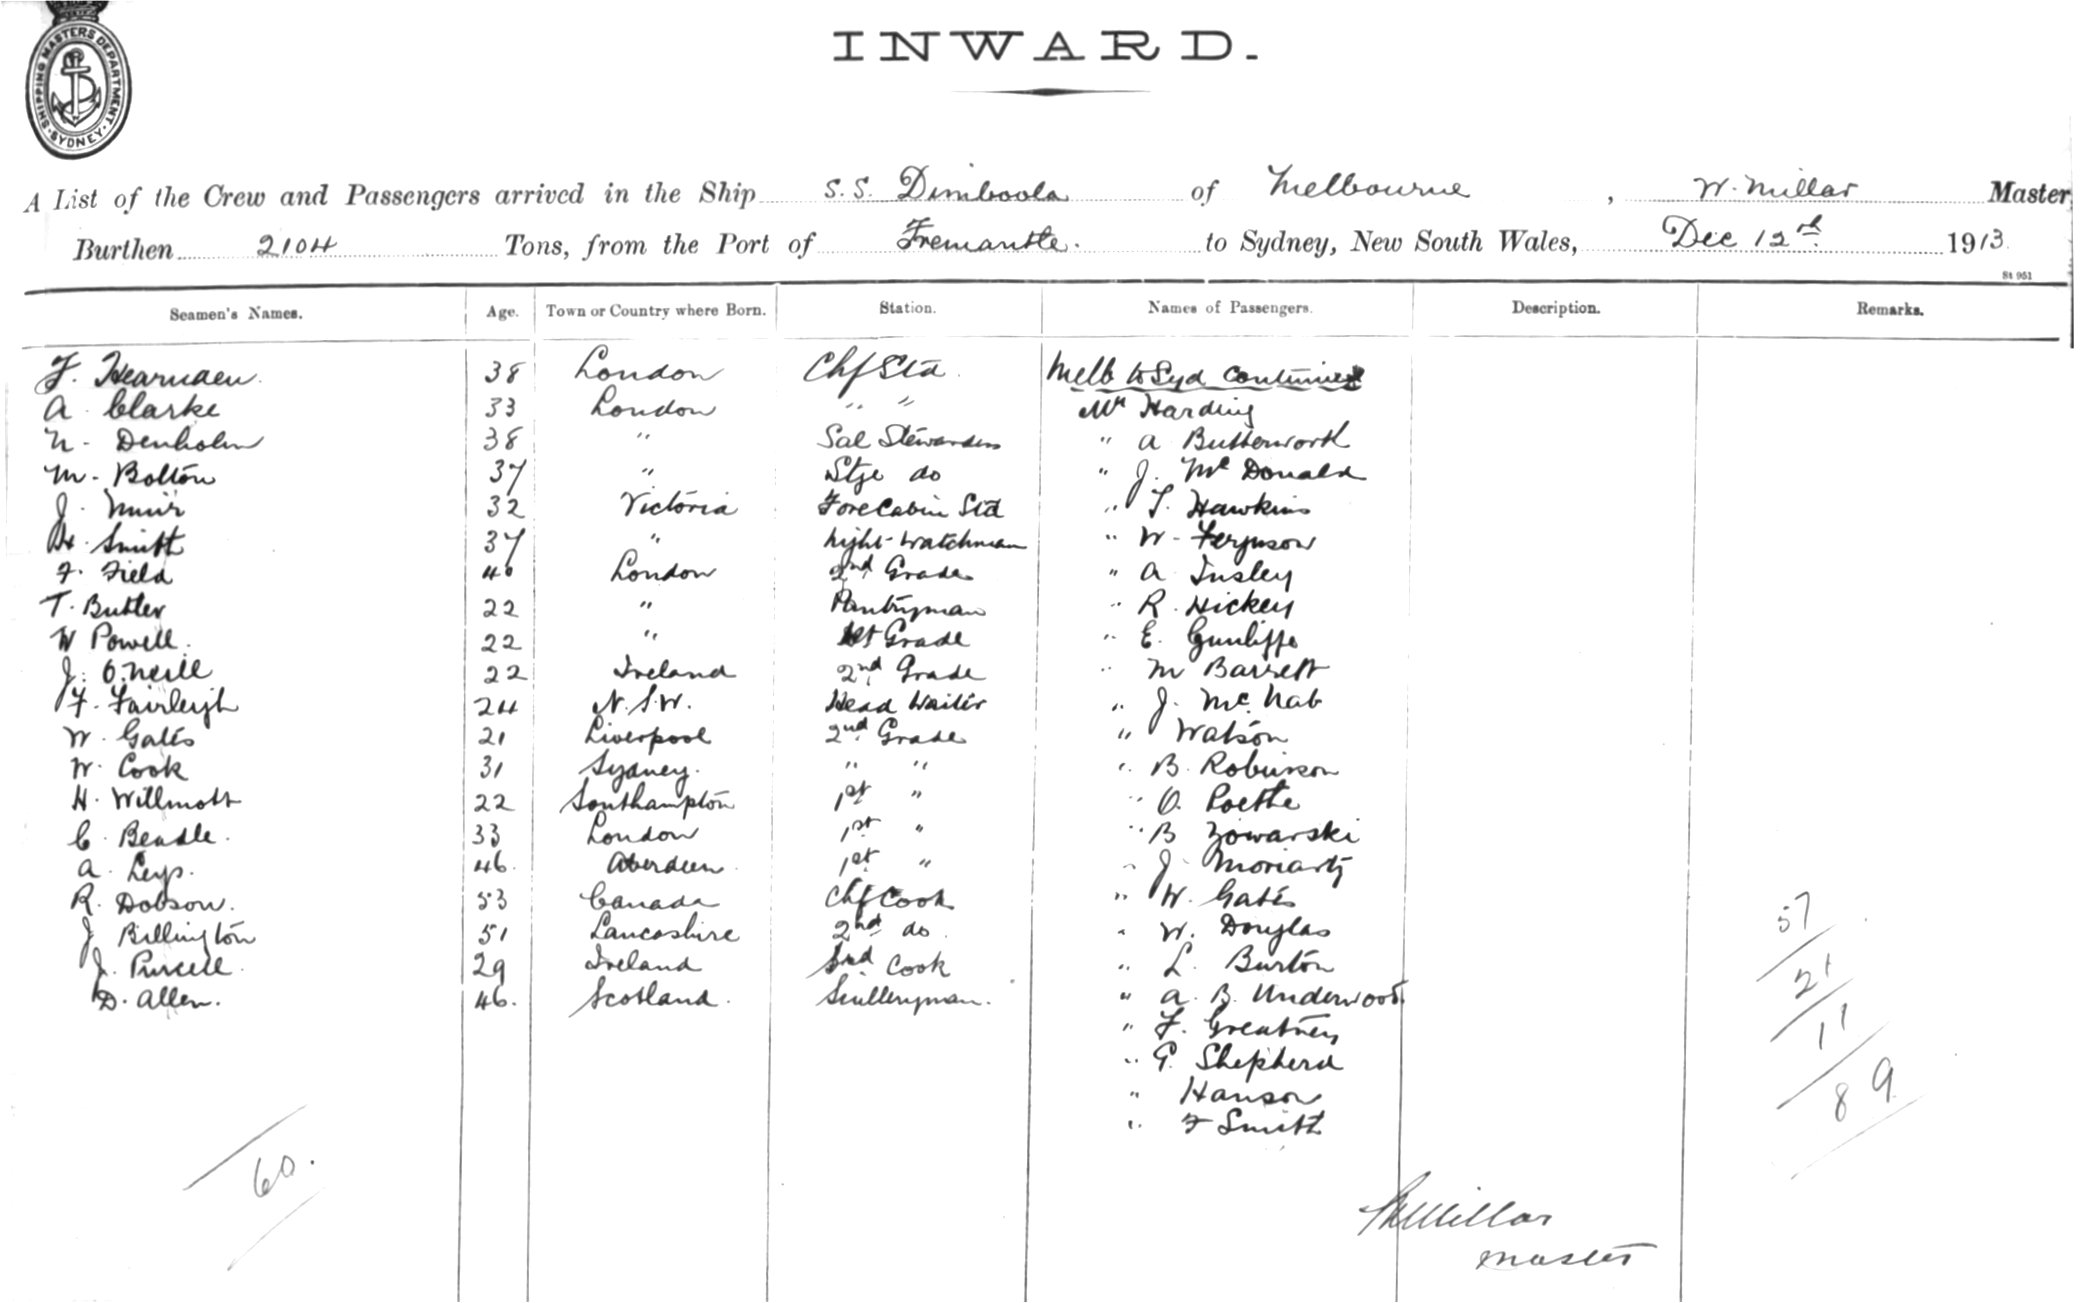 SHIPPING MASTERS DEPARTMENT · SYDNEY ·
INWARD.
A List of the Crew and Passengers arrived in the Ship S.S. Dimboola of Melbourne, W. Millar Master
Burthen 2104 Tons, from the Port of Fremantle. to Sydney, New South Wales, Dec 12th 1913
St 951
Seamen's Names. Age. Town or Country where Born. Station. Names of Passengers. Description. Remarks.
F. Hearnden 38 London Chf Std. Melb to Syd continued
A. Clarke 33 London " " Mr Harding
N. Denholm 38 " Sal Stewardess " A Butterworth
M. Bolton 37 " Stge do " J. McDonald
J. Muir 32 Victoria Fore Cabin Std " T. Hawkins
H. Smith 37 " Night-Watchman " W. Ferguson
F. Field 40 London 2nd Grade " A Insley
T. Butler 22 " Pantryman " R. Hickey
W Powell. 22 " 1st Grade " E. Gunliffe
J. O'Neill 22 Ireland 2nd Grade " M Barrett
F. Fairleigh 24 N.S.W. Head Waiter " J. McNab
W. Gates 21 Liverpool 2nd Grade " Watson
W. Cook 31 Sydney. " " " B. Robinson
H. Willmott 22 Southampton 1st " " O. Poethe
C. Beadle. 33 London 1st " " B Zowarski
A. Leys. 46. Aberdeen 1st " " J. Moriarty
R. Dobson. 53 Canada Chf Cook " W. Gates
J Billington 51 Lancashire 2nd do. " W. Douglas
J. Purcell. 29 Ireland 3rd Cook " L. Burton
D. Allen. 46. Scotland. Sculleryman. " A. B. Underwood
" F. Greatney
" G. Shepherd
" Hanson
" F Smith
57
21
11
89
60.
W Millar
Master